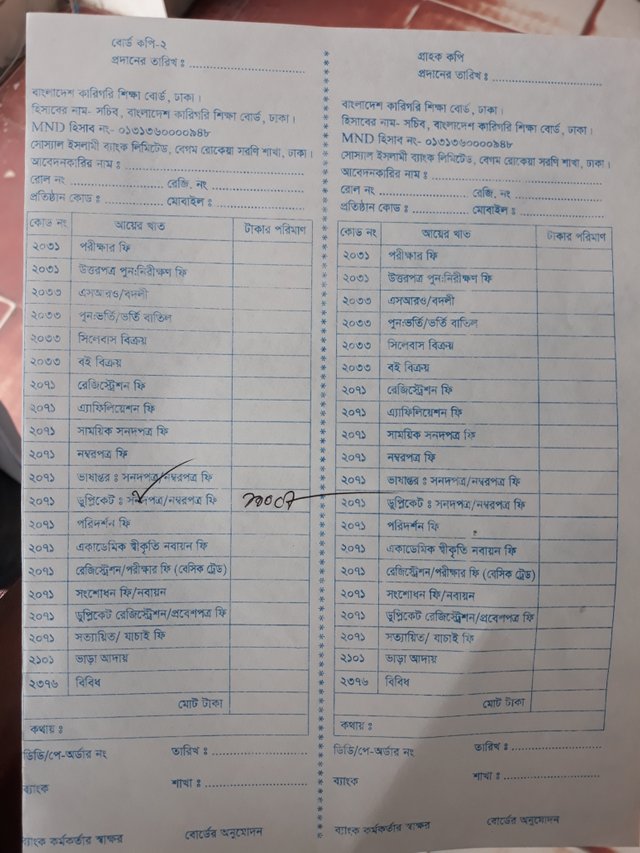 বোর্ড কপি-২
প্রদানের তারিখ ঃ
বাংলাদেশ কারিগরি শিক্ষা বোর্ড, ঢাকা।
হিসাবের নাম- সচিব, বাংলাদেশ কারিগরি শিক্ষা বোর্ড, ঢাকা।
MND হিসাব নং- ০১৩১৩৬০০০০৯৪৮
সোস্যাল ইসলামী ব্যাংক লিমিটেড, বেগম রোকেয়া সরণি শাখা, ঢাকা।
আবেদনকারির নাম ঃ
রোল নং রেজি. নং
প্রতিষ্ঠান কোড ঃ মোবাইল ঃ
কোড নং আয়ের খাত টাকার পরিমাণ
২০৩১ পরীক্ষার ফি
২০৩১ উত্তরপত্র পুন:নিরীক্ষণ ফি
২০৩৩ এসআরও/বদলী
২০৩৩ পুন:ভর্তি/ভর্তি বাতিল
২০৩৩ সিলেবাস বিক্রয়
২০৩৩ বই বিক্রয়
২০৭১ রেজিস্ট্রেশন ফি
২০৭১ এ্যাফিলিয়েশন ফি
২০৭১ সাময়িক সনদপত্র ফি
২০৭১ নম্বরপত্র ফি
২০৭১ ভাষান্তর ঃ সনদপত্র/নম্বরপত্র ফি
২০৭১ ডুপ্লিকেট ঃ সনদপত্র/নম্বরপত্র ফি
২০৭১ পরিদর্শন ফি
২০৭১ একাডেমিক স্বীকৃতি নবায়ন ফি
২০৭১ রেজিস্ট্রেশন/পরীক্ষার ফি (বেসিক ট্রেড)
২০৭১ সংশোধন ফি/নবায়ন
২০৭১ ডুপ্লিকেট রেজিস্ট্রেশন/প্রবেশপত্র ফি
২০৭১ সত্যায়িত/ যাচাই ফি
২১০১ ভাড়া আদায়
২৩৭৬ বিবিধ
মোট টাকা
কথায় ঃ
ডিডি/পে-অর্ডার নং তারিখ ঃ
ব্যাংক শাখা ঃ
ব্যাংক কর্মকর্তার স্বাক্ষর বোর্ডের অনুমোদন
গ্রাহক কপি
প্রদানের তারিখ ঃ
বাংলাদেশ কারিগরি শিক্ষা বোর্ড, ঢাকা।
হিসাবের নাম- সচিব, বাংলাদেশ কারিগরি শিক্ষা বোর্ড, ঢাকা।
MND হিসাব নং- ০১৩১৩৬০০০০৯৪৮
সোস্যাল ইসলামী ব্যাংক লিমিটেড, বেগম রোকেয়া সরণি শাখা, ঢাকা।
আবেদনকারির নাম ঃ
রোল নং রেজি. নং
প্রতিষ্ঠান কোড ঃ মোবাইল ঃ
কোড নং আয়ের খাত টাকার পরিমাণ
২০৩১ পরীক্ষার ফি
২০৩১ উত্তরপত্র পুন:নিরীক্ষণ ফি
২০৩৩ এসআরও/বদলী
২০৩৩ পুন:ভর্তি/ভর্তি বাতিল
২০৩৩ সিলেবাস বিক্রয়
২০৩৩ বই বিক্রয়
২০৭১ রেজিস্ট্রেশন ফি
২০৭১ এ্যাফিলিয়েশন ফি
২০৭১ সাময়িক সনদপত্র ফি
২০৭১ নম্বরপত্র ফি
২০৭১ ভাষান্তর ঃ সনদপত্র/নম্বরপত্র ফি
২০৭১ ডুপ্লিকেট ঃ সনদপত্র/নম্বরপত্র ফি
২০৭১ পরিদর্শন ফি
২০৭১ একাডেমিক স্বীকৃতি নবায়ন ফি
২০৭১ রেজিস্ট্রেশন/পরীক্ষার ফি (বেসিক ট্রেড)
২০৭১ সংশোধন ফি/নবায়ন
২০৭১ ডুপ্লিকেট রেজিস্ট্রেশন/প্রবেশপত্র ফি
২০৭১ সত্যায়িত/ যাচাই ফি
২১০১ ভাড়া আদায়
২৩৭৬ বিবিধ
মোট টাকা
কথায় ঃ
ডিডি/পে-অর্ডার নং তারিখ ঃ
ব্যাংক শাখা ঃ
ব্যাংক কর্মকর্তার স্বাক্ষর বোর্ডের অনুমোদন